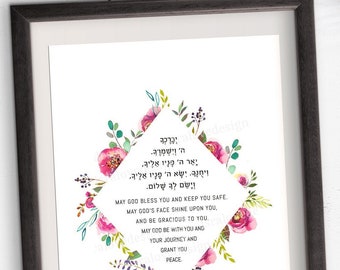 יְבָרֶכְךָ
ה׳ וְיִשְׁמְרֶךָ.
יָאֵר ה׳ פָּנָיו אֵלֶיךָ,
וִיחֻנֶּךָּ. יִשָּׂא ה׳ פָּנָיו אֵלֶיךָ,
וְיָשֵׂם לְךָ שָׁלוֹם.
MAY GOD BLESS YOU AND KEEP YOU SAFE,
MAY GOD'S FACE SHINE UPON YOU,
AND BE GRACIOUS TO YOU.
MAY GOD BE WITH YOU AND
YOUR JOURNEY AND
GRANT YOU
PEACE.